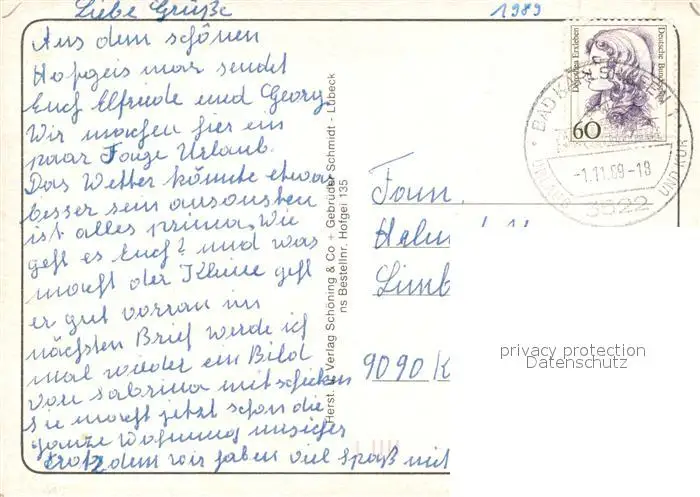 Liebe Grüße
1989
Aus dem schönen
Hofgeismar sendet
Euch Elfriede und Georg
Wir machen hier ein
paar Tage Urlaub.
Das Wetter könnte etwas
besser sein ansonsten
ist alles prima. Wie
geht es Euch? und was
macht der Kleine geht
er gut voran im
nächsten Brief werde ich
mal wieder ein Bild
von Sabrina mit schicken
sie macht jetzt schon die
ganze Wohnung unsicher
trotzdem wir haben viel Spaß mit
Herst. u. Verlag Schöning & Co + Gebrüder Schmidt - Lübeck
ns Bestellnr. Hofgei 135
Dorothea Erxleben
Deutsche Bundespost
60
BAD
-1.11.89-18
URLAUB UND KUR
3522
Fam.
9090 K
privacy protection
Datenschutz